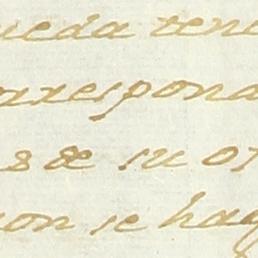 ueda tene
orrespond
s de su or
on se hag